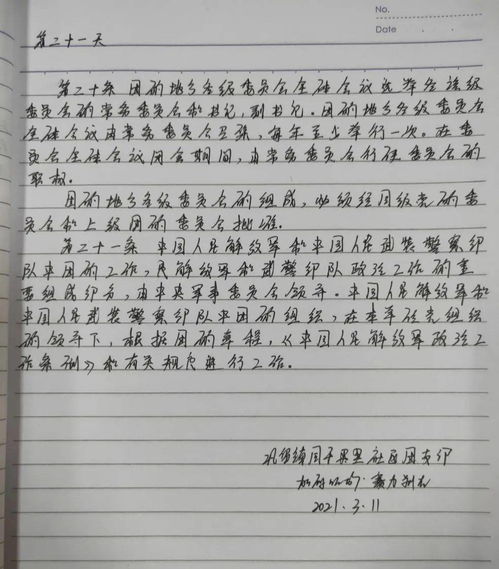 No.
Date
第二十一天
第二十条 团的地方各级委员会全体会议选举各该级
委员会的常务委员会和书记,副书记。团的地方各级委员会
全体会议由常务委员会召集,每年至少举行一次。在委
员会全体会议闭会期间,由常务委员会行使委员会的
职权。
团的地方各级委员会的组成,必须经同级党的委
员会和上级团的委员会批准。
第二十一条 中国人民解放军和中国人民武装警察部
队中团的工作,是解放军和武警部队政治工作的重
要组成部分,由中央军事委员会领导。中国人民解放军和
中国人民武装警察部队中团的组织,在本单位党组织
的领导下,根据团的章程,《中国人民解放军政治工
作条例》和有关规定进行工作。
社区团支部
2021.3.11